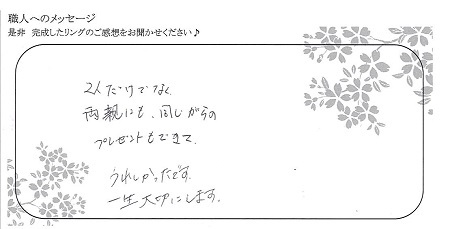 職人へのメッセージ
是非 完成したリングのご感想をお聞かせください♪
2人だけでなく
両親にも、同じがらの
プレゼントもできて、
うれしかったです。
一生大切にします。